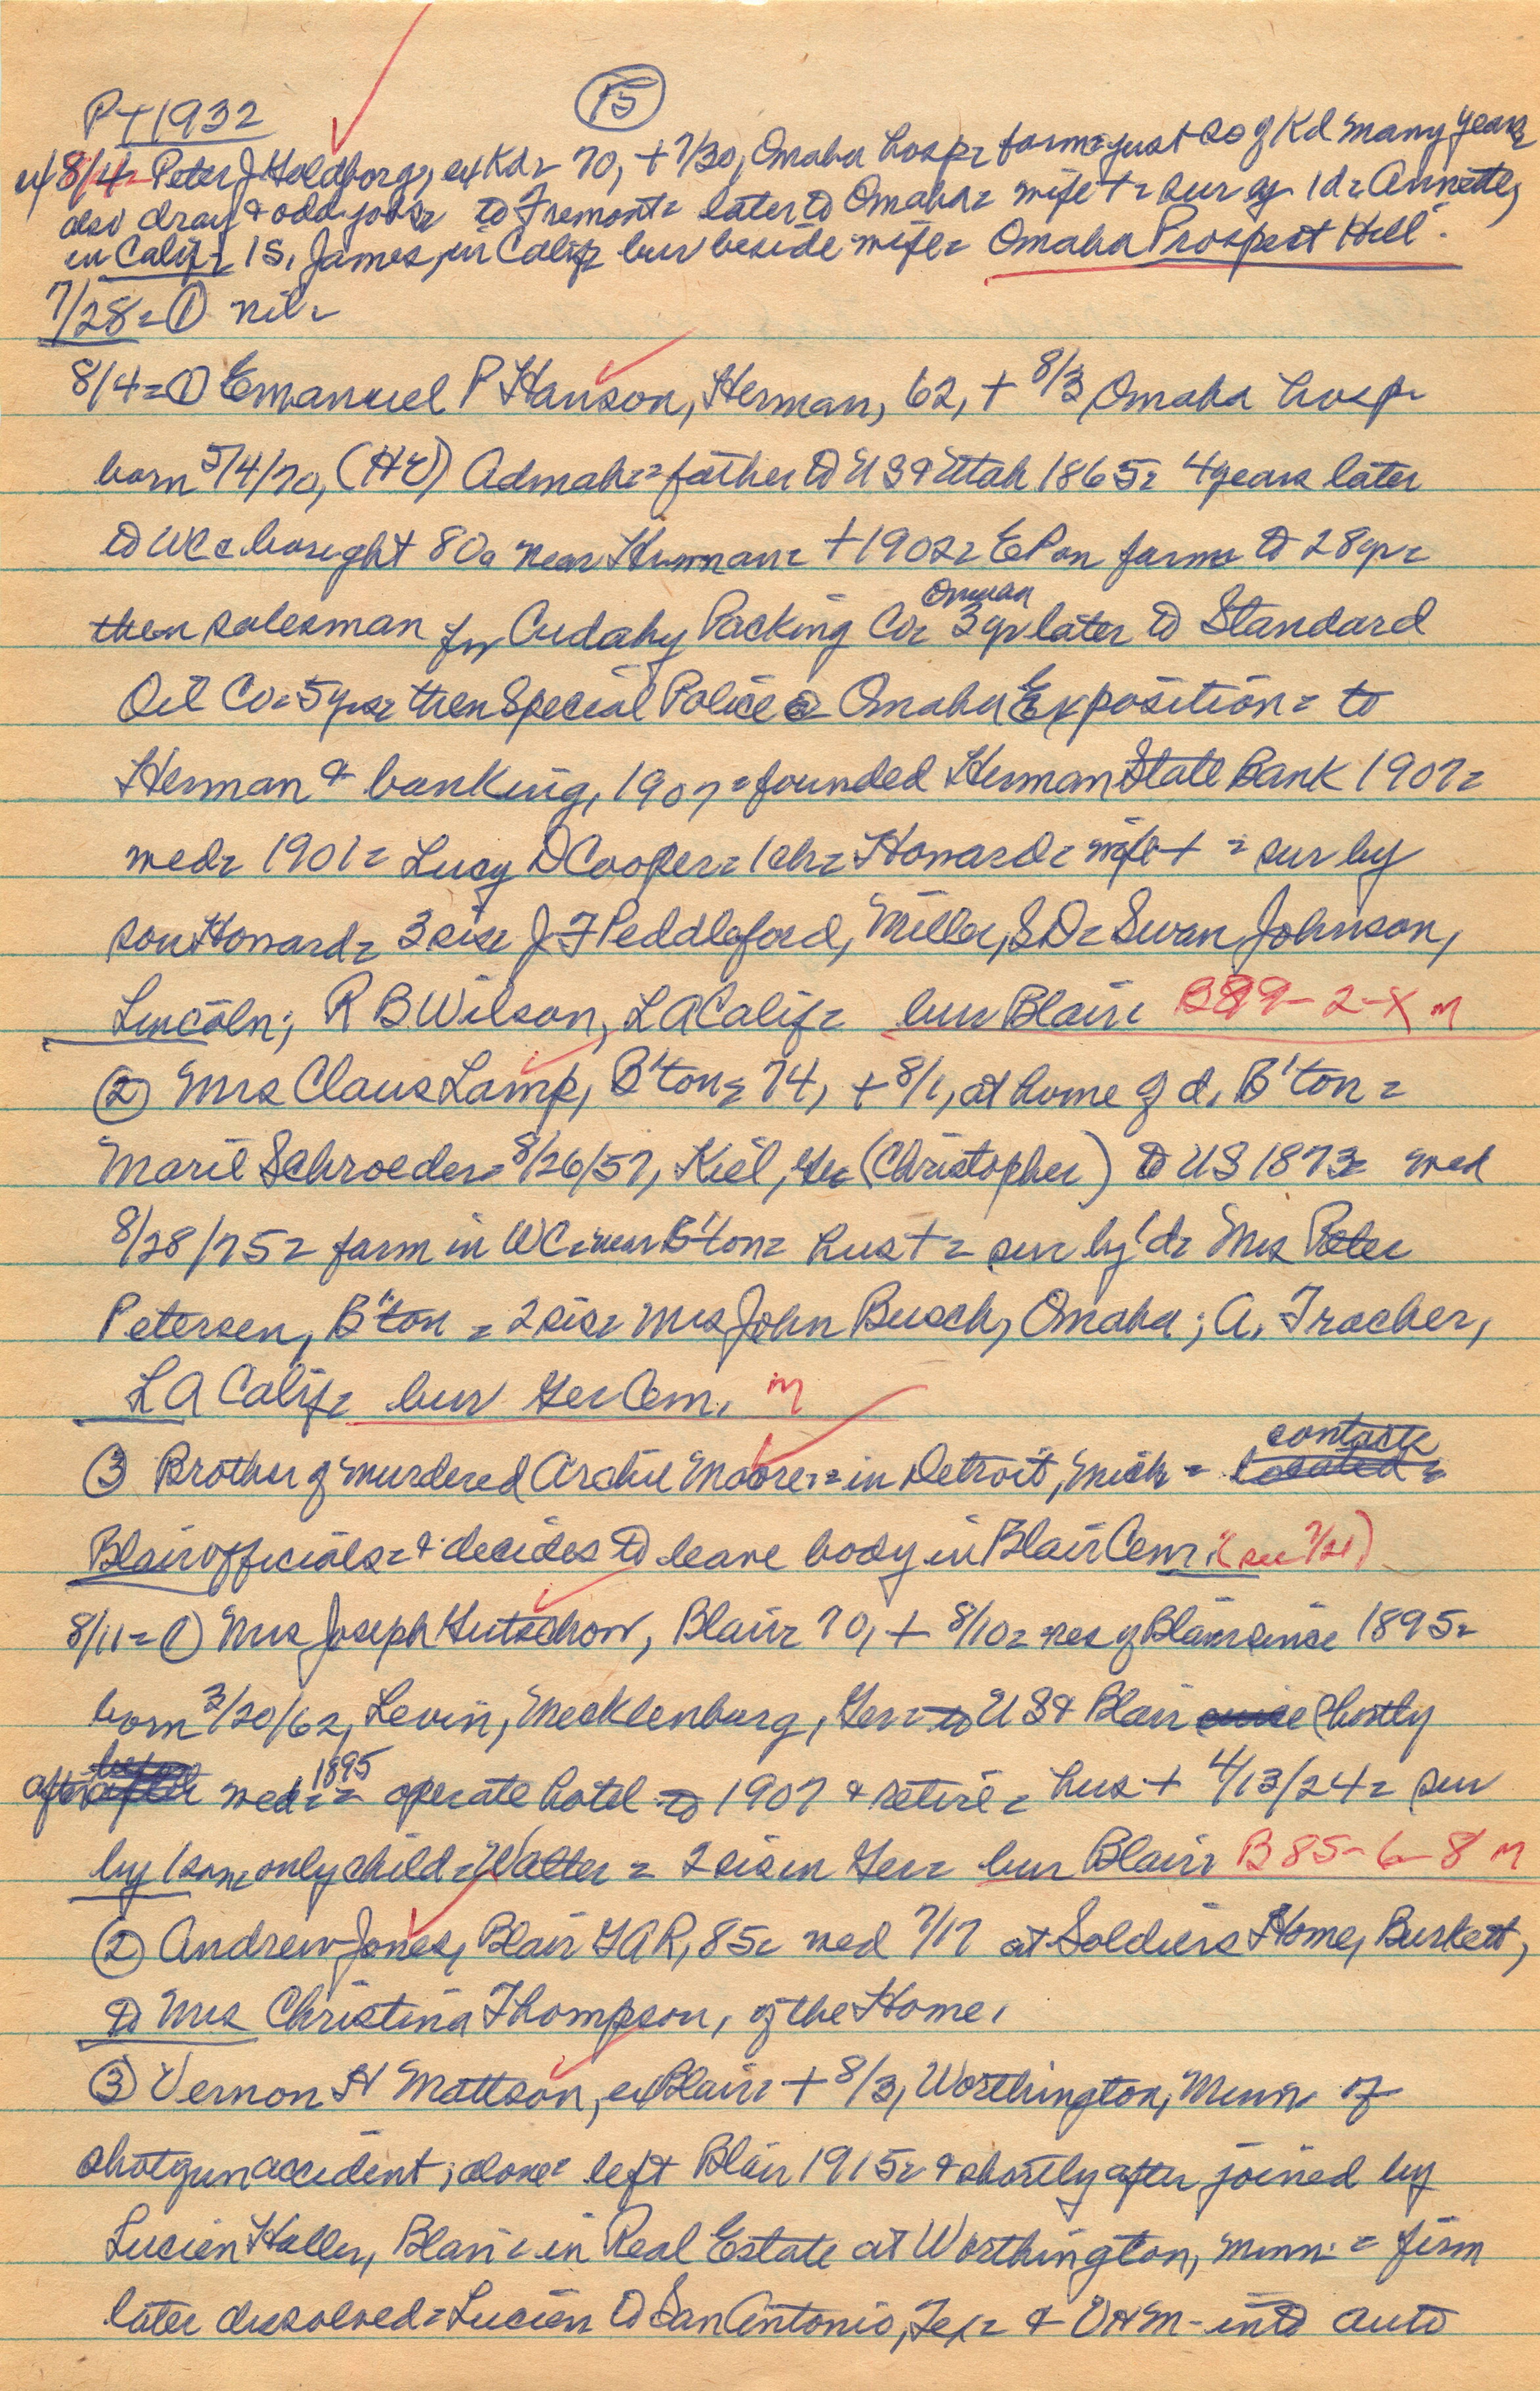 15
PT 1932
ex 8/4= Peter J Holdforg, ex Kd= 70, + 7/30, Omaha hosp= farm= just so of Kd many years
also dray & odd jobs= to Fremont= later to Omaha= wife += sur by 1d= Annette,
in Calif= 1s, James, in Calif= bur beside wife= Omaha Prospect Hill.
7/28= ① nil=
8/4= ① Emanuel P Hanson, Herman, 62, + 8/3 Omaha hosp=
born 5/4/70, (HE) Admah== father to US & Utah 1865= 4 years later
to WC & bought 80a near Herman= + 1902= EP on farm to 28yr=
then salesman for Cudahy Packing Co= Omaha 3yr later to Standard
Oil Co= 5yrs= then Special Police @ Omaha Exposition= to
Herman & banking, 1907= founded Herman State Bank 1907=
med= 1901= Lucy D Cooper= 1ch= Howard= wife + = sur by
son Howard= 3 sis= J F Peddleford, Miller, SD= Swan Johnson,
Lincoln; R B Wilson, LA Calif= bur Blair= B89-2-X m
② Mrs Claus Lamp, B'ton= 74, + 8/1, at home of d, B'ton=
Marie Schroeder= 8/26/57, Kiel, Ger (Christopher) to US 1873= med
8/28/75= farm in WC= near B'ton= hus + = sur by 1d= Mrs Peter
Petersen, B'ton = 2 sis= Mrs John Busch, Omaha; A. Tracher,
LA Calif= bur Ger Cem. m
③ Brother of murdered Archie Moore== in Detroit, Mich = contacts
Blair officials= & decides to leave body in Blair Cem= (see 7/21)
8/11= ① Mrs Joseph Gutschow, Blair= 70, + 8/10= res of Blair since 1895=
born 3/20/62, Levin, Mecklenburg, Ger= to US & Blair shortly
after med= 1895 = operate hotel to 1907 & retire= hus + 4/13/24= sur
by 1 son= only child= Walter = 2 sis in Ger= bur Blair= B 85-6-8 m
② Andrew Jones, Blair GAR, 85= med 7/17 at Soldiers Home, Burkett,
to Mrs Christina Thompson, of the Home.
③ Vernon H Mattson, ex Blair= + 8/3, Worthington, Minn= of
shotgun accident; alone= left Blair 1915= & shortly after joined by
Lucien Haller, Blair= in Real Estate at Worthington, Minn= firm
later dissolved= Lucien to San Antonio, Tex= & VHM- into auto